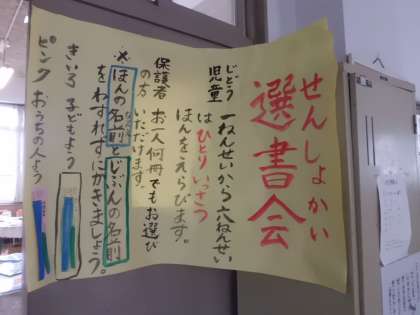 せんしょかい
選書会
じどう
児童
一ねんせいから六ねんせい
は ひとり いっさつ
ほんをえらびます。
保護者
の方
お一人何冊でもお選び
いただけます。
※ほんの名前とじぶんの名前
をわすれずにかきましょう。
きいろ 子どもよう
ピンク おうちの人よう